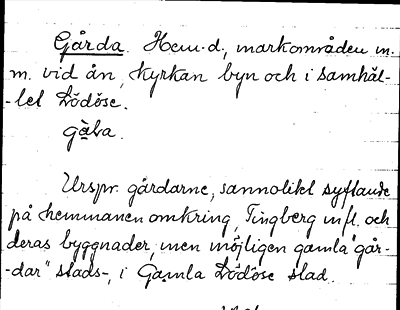 Gårda. Hem.d., markområden m.
m. vid ån, kyrkan byn och i samhäl-
-let Lödöse.
gàḷa.
Urspr. gårdarne, sannolikt syftande
på hemmanen omkring, Tingberg m fl. och
deras byggnader, men möjligen gamla "går-
-dar" stads-, i Gamla Lödöse stad.